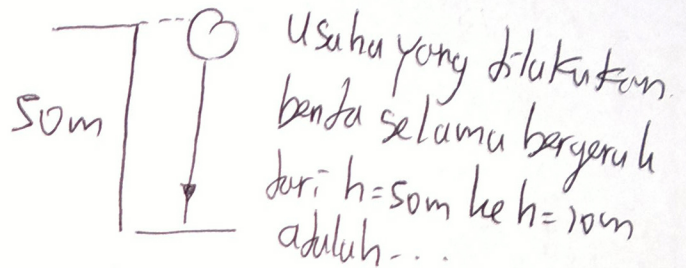 50m
Usaha yang dilakukan
benda selama bergerak
dari h=50m ke h=10m
adalah...